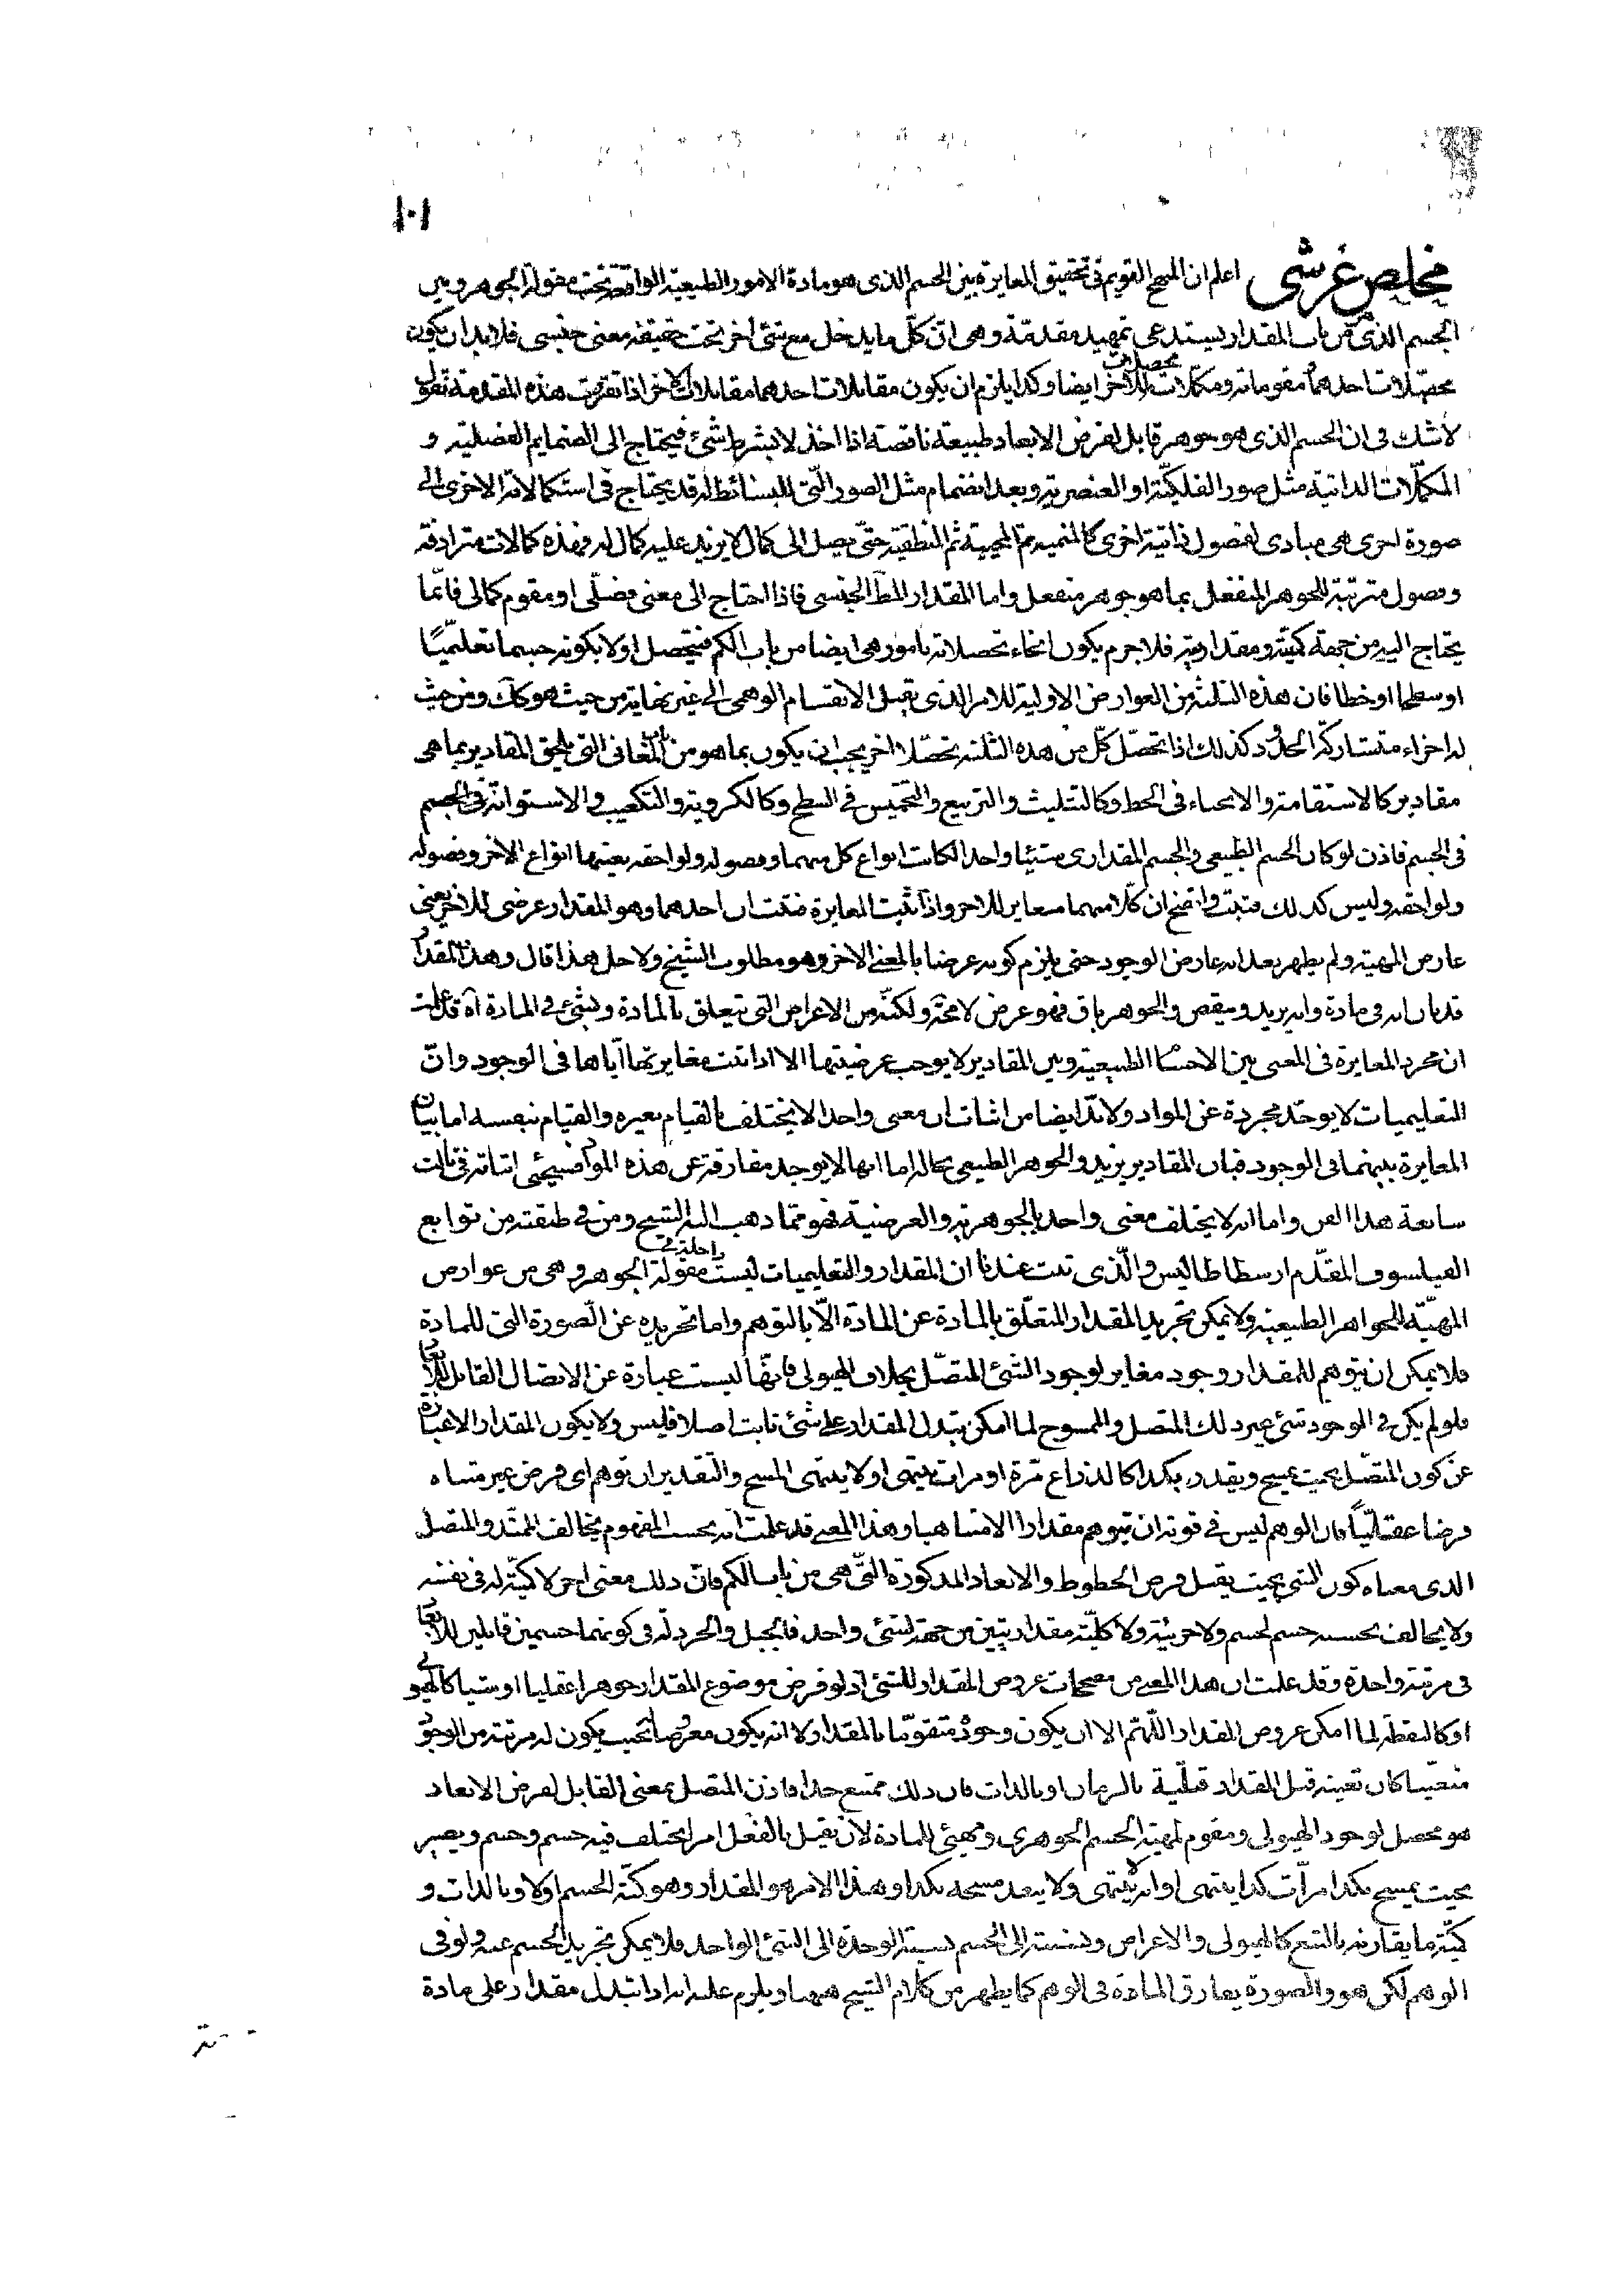 ١٠١
مخلص عرشى اعلم ان المنهج القويم فى تحقيق المغايرة بين الجسم الذى هو مادة الامور الطبيعية الواقعة تحت مقولة الجوهر وبين
الجسم الذى من باب المقدار يستدعى تمهيد مقدمّة وهى انّ كلّ ما يدخل مع شئ اخر تحت حقيقة معنى جنسى فلا بد ان يكون
محصّلات احدهما مقوماته ومكمّلات محصلات للاخر ايضا وكذا يلزم ان يكون مقابلات احدهما مقابلات الاخر اذا تقررت هذه المقدمة نقول
لا شك فى ان الجسم الذى هو جوهر قابل لفرض الابعاد طبيعة ناقصة اذا اخذ لا بشرط شئ فيحتاج الى الضمايم الفصلية و
المكمّلات الذاتية مثل صور الفلكيّة او العنصرية وبعد انضمام مثل الصور الّتى للبسائط له قد يحتاج فى استكمالاته الاخرى الى
صورة اخرى هى مبادى لفصول ذاتية اخرى كالمنمية ثم الحيية ثم النطقية حتّى يصل الى كمال لا يزيد عليه كمال له فهذه كمالات مترادفة
وفصول مترتبة للجوهر المنفعل بما هو جوهر منفعل واما المقدار المط الجنسى فاذا احتاج الى معنى فصلّى او مقوم كمالى فانّما
يحتاج اليه من جهة كميّته ومقداريته فلا جرم يكون انحاء تحصلاته بامور هى ايضا من باب الكم فيتحصل اولا بكونه جسما تعليميّا
او سطحا او خطا فان هذه الثلثة من العوارض الاولية للامر الذى يقبل الانقسام الوهمى الى غير نهاية من حيث هو كك ومن حيث
له اجزاء متشاركة الحدود كذلك اذا تحصّل كلّ من هذه الثلثة تحصّلا اخر يجب ان يكون بما هو من المعانى التى يلحق المقادير بما هى
مقادير كالاستقامة والانحناء فى الخط وكالتثليث والتربيع والتخميس فى السطح وكالكروية والتكعيب والاستوانة فى الجسم
فى الجسم فاذن لو كان الجسم الطبيعى والجسم المقدارى شيئا واحدا لكانت انواع كل منهما وفصوله ولواحقه بعينها انواع الاخر وفصوله
ولواحقه وليس كذلك فثبت واتضح ان كلا منهما مغاير للاخر واذا ثبت المغايرة فثبت ان احدهما وهو المقدار عرضى للاخر يعنى
عارض المهية ولم يظهر بعد انه عارض الوجود حتى يلزم كونه عرضا بالمعنى الاخر وهو مطلوب الشيخ ولاجل هذا قال وهذا المقدار
قد بان انه فى مادة وانه يزيد وينقص والجوهر باق فهو عرض لا محة ولكنّه من الاعراض التى تتعلق بالمادة وبشئ فى المادة آه قد علمت
ان مجرد المغايرة فى المعنى بين الاجسام الطبيعية وبين المقادير لا يوجب عرضيتها الا اذا ثبت مغايرتها ايّاها فى الوجود وانّ
التعليميات لا يوجد مجردة عن المواد ولا بدّ ايضا من اثبات ان معنى واحدا لا يختلف بالقيام بغيره والقيام بنفسه اما بيان
المغايرة بينهما فى الوجود فبان المقادير يزيد والجوهر الطبيعى بحاله اما انها لا يوجد مفارقة عن هذه المواد فسيجئ اثباته فى ثالث
سابعة هذا الفن واما انه لا يختلف معنى واحد بالجوهرية والعرضية فهو ممّا ذهب اليه الشيخ ومن فى طبقته من توابع
الفيلسوف المقدّم ارسطاطاليس والّذى ثبت عندنا ان المقدار والتعليميات ليست داخلة فى مقولة الجوهر وهى من عوارض
المهيّة للجواهر الطبيعية ولا يمكن تجريد المقدار المتعلّق بالمادة عن المادة الاّ بالتوهم واما تجريده عن الصورة التى للمادة
فلا يمكن ان يتوهم للمقدار وجود مغاير لوجود الشئ المتصّل بخلاف الهيولى فانّها ليست عبارة عن الاتصال القابل للابعاد
فلو لم يكن فى الوجود شئ غير ذلك المتصل والممسوح لما امكن تبدل المقدار على شئ ثابت اصلا فليس ولا يكون المقدار الا عبارة
عن كون المتصّل بحيث يمسح ويقدر بكذا كالذراع مرّة او مرات ينتهى او لا ينتهى المسح والتقدير ان توهم اى فرض غير متناه
فرضا عقليّاً فان الوهم ليس فى قوته ان يتوهم مقدارا لا متناهيا وهذا المعنى قد علمت انّه بحسب المفهوم يخالف الممتدّ والمتصل
الذى معناه كون الشئ بحيث يقبل فرض الخطوط والابعاد المذكورة الّتى هى من باب الكم فانّ ذلك معنى اخر لا كميّة له فى نفسه
ولا يخالف بحسبه جسم لجسم ولا جزئية ولا كليّة مقداريتين من جهة لشئ واحد فالجبل والخردلة فى كونهما جسمين قابلين للابعاد
فى مرتبة واحدة وقد علمت ان هذا المعنى من مصححات عروض المقدار للشئ اذ لو فرض موضوع المقدار جوهرا عقليا او شيئا كالهيولى
او كالنقطة لما امكن عروض المقدار اللّهم الا ان يكون وجوده متقوّما بالمقدار لا انه يكون معروضا بحيث يكون له مرتبة من الوجود
متعيّنا كان تعينه قبل المقدار قبلّية بالزمان او بالذات فان ذلك ممتنع جدا فاذن المتصل بمعنى القابل لفرض الابعاد
هو محصل لوجود الهيولى ومقوم لمهية الجسم الجوهرى ومهيّئ للمادة لان يقبل بالفعل امرا يختلف فيه جسم وجسم ويصير
بحيث يمسح بكذا مرّات كذا ينتهى او انه لا ينتهى ولا ينعد مسحه بكذا وهذا الامر هو المقدار وهو كميّة الجسم اولا وبالذات و
كميّة ما يقارنه بالتبع كالهيولى والاعراض ونسبته الى الجسم نسبة الوحدة الى الشئ الواحد فلا يمكن تجريد الجسم عنه ولو فى
الوهم لكن هو والصورة يفارق المادة فى الوهم كما يظهر من كلام الشيخ ههنا ويلزم عليه انه اذا تبدل مقدار على مادة